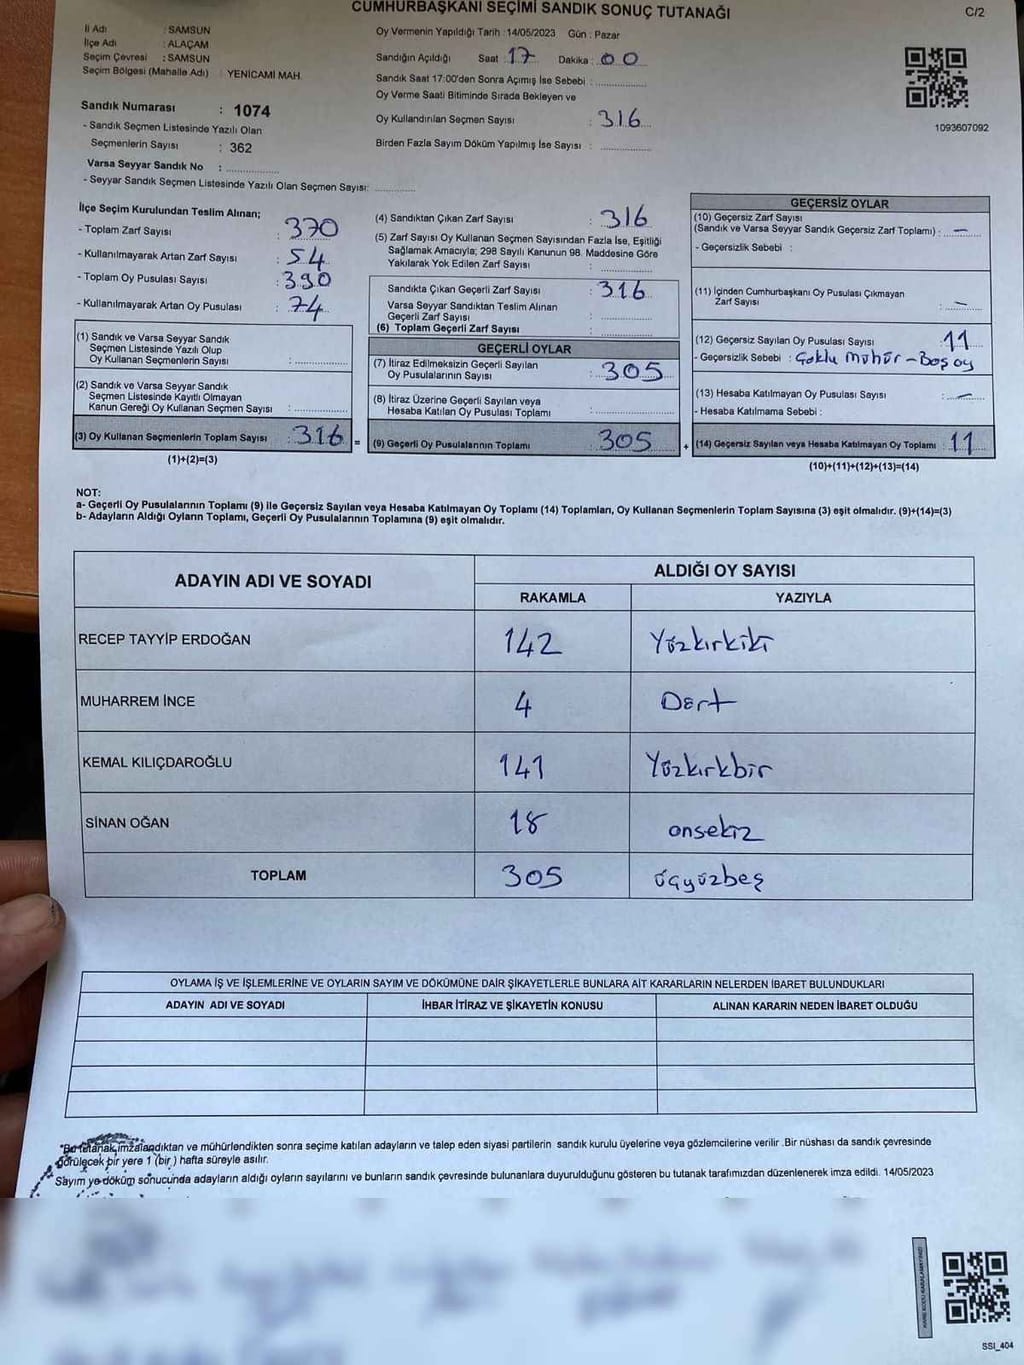 CUMHURBAŞKANI SEÇİMİ SANDIK SONUÇ TUTANAĞI
C/2
İl Adı : SAMSUN
İlçe Adı : ALAÇAM
Seçim Çevresi : SAMSUN
Seçim Bölgesi (Mahalle Adı) : YENİCAMİ MAH.
Sandık Numarası : 1074
- Sandık Seçmen Listesinde Yazılı Olan
Seçmenlerin Sayısı : 362
Varsa Seyyar Sandık No :
- Seyyar Sandık Seçmen Listesinde Yazılı Olan Seçmen Sayısı:
Oy Vermenin Yapıldığı Tarih : 14/05/2023 Gün : Pazar
Sandığın Açıldığı Saat : 17 Dakika : 00
Sandık Saat 17:00'den Sonra Açımış İse Sebebi :
Oy Verme Saati Bitiminde Sırada Bekleyen ve
Oy Kullandırılan Seçmen Sayısı : 316
Birden Fazla Sayım Döküm Yapılmış İse Sayısı :
1093607092
İlçe Seçim Kurulundan Teslim Alınan;
- Toplam Zarf Sayısı : 370
- Kullanılmayarak Artan Zarf Sayısı : 54
- Toplam Oy Pusulası Sayısı : 390
- Kullanılmayarak Artan Oy Pusulası : 74
(1) Sandık ve Varsa Seyyar Sandık
Seçmen Listesinde Yazılı Olup
Oy Kullanan Seçmenlerin Sayısı :
(2) Sandık ve Varsa Seyyar Sandık
Seçmen Listesinde Kayıtlı Olmayan
Kanun Gereği Oy Kullanan Seçmen Sayısı :
(3) Oy Kullanan Seçmenlerin Toplam Sayısı : 316 =
(1)+(2)=(3)
(4) Sandıktan Çıkan Zarf Sayısı : 316
(5) Zarf Sayısı Oy Kullanan Seçmen Sayısından Fazla İse, Eşitliği
Sağlamak Amacıyla; 298 Sayılı Kanunun 98. Maddesine Göre
Yakılarak Yok Edilen Zarf Sayısı :
Sandıkta Çıkan Geçerli Zarf Sayısı : 316
Varsa Seyyar Sandıktan Teslim Alınan
Geçerli Zarf Sayısı :
(6) Toplam Geçerli Zarf Sayısı :
GEÇERLİ OYLAR
(7) İtiraz Edilmeksizin Geçerli Sayılan
Oy Pusulalarının Sayısı : 305
(8) İtiraz Üzerine Geçerli Sayılan veya
Hesaba Katılan Oy Pusulası Toplamı :
(9) Geçerli Oy Pusulalarının Toplamı 305 +
GEÇERSİZ OYLAR
(10) Geçersiz Zarf Sayısı
(Sandık ve Varsa Seyyar Sandık Geçersiz Zarf Toplamı) : —
- Geçersizlik Sebebi :
(11) İçinden Cumhurbaşkanı Oy Pusulası Çıkmayan
Zarf Sayısı : —
(12) Geçersiz Sayılan Oy Pusulası Sayısı : 11
- Geçersizlik Sebebi : Çoklu mühür - Boş oy
(13) Hesaba Katılmayan Oy Pusulası Sayısı : —
- Hesaba Katılmama Sebebi :
(14) Geçersiz Sayılan veya Hesaba Katılmayan Oy Toplamı : 11
(10)+(11)+(12)+(13)=(14)
NOT:
a- Geçerli Oy Pusulalarının Toplamı (9) ile Geçersiz Sayılan veya Hesaba Katılmayan Oy Toplamı (14) Toplamları, Oy Kullanan Seçmenlerin Toplam Sayısına (3) eşit olmalıdır. (9)+(14)=(3)
b- Adayların Aldığı Oyların Toplamı, Geçerli Oy Pusulalarının Toplamına (9) eşit olmalıdır.
ADAYIN ADI VE SOYADI ALDIĞI OY SAYISI
RAKAMLA YAZIYLA
RECEP TAYYİP ERDOĞAN 142 Yüzkırkiki
MUHARREM İNCE 4 Dört
KEMAL KILIÇDAROĞLU 141 Yüzkırkbir
SİNAN OĞAN 18 onsekiz
TOPLAM 305 üçyüzbeş
OYLAMA İŞ VE İŞLEMLERİNE VE OYLARIN SAYIM VE DÖKÜMÜNE DAİR ŞİKAYETLERLE BUNLARA AİT KARARLARIN NELERDEN İBARET BULUNDUKLARI
ADAYIN ADI VE SOYADI İHBAR İTİRAZ VE ŞİKAYETİN KONUSU ALINAN KARARIN NEDEN İBARET OLDUĞU
"Bu tutanak imzalandıktan ve mühürlendikten sonra seçime katılan adayların ve talep eden siyasi partilerin sandık kurulu üyelerine veya gözlemcilerine verilir .Bir nüshası da sandık çevresinde
görülecek bir yere 1 (bir ) hafta süreyle asılır.
Sayım ve döküm sonucunda adayların aldığı oyların sayılarını ve bunların sandık çevresinde bulunanlara duyurulduğunu gösteren bu tutanak tarafımızdan düzenlenerek imza edildi. 14/05/2023
SSI_404